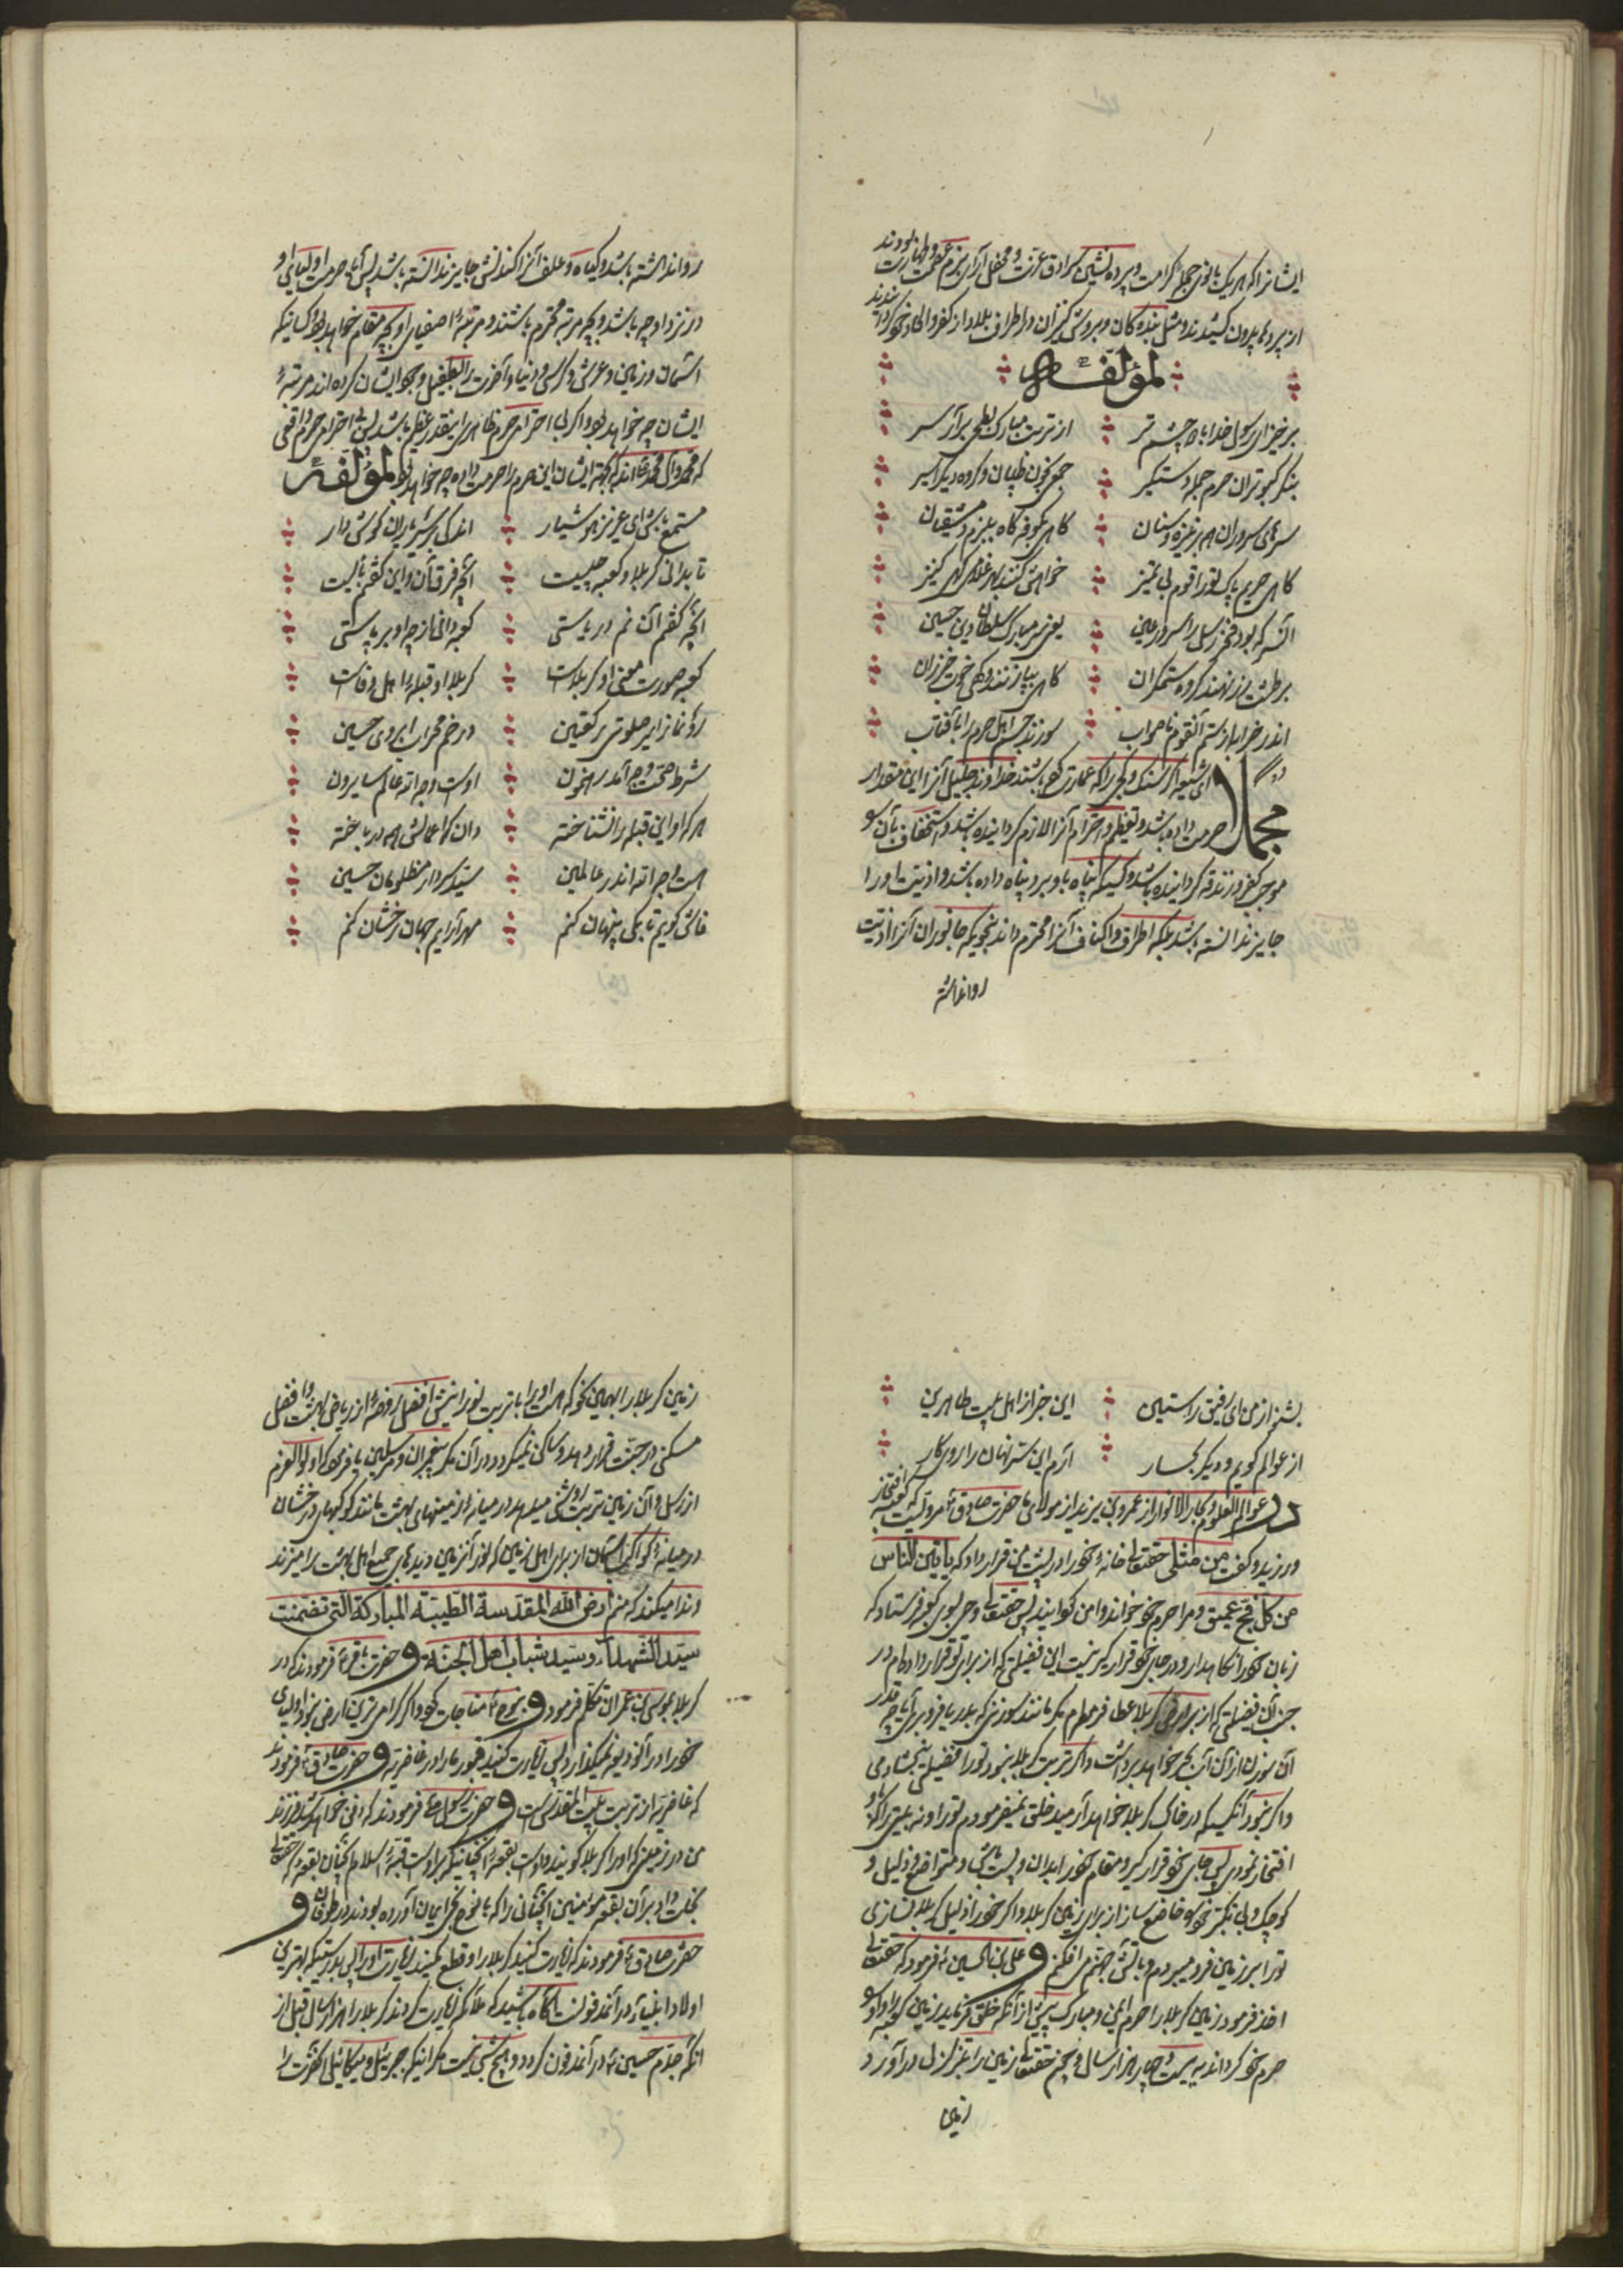 ایشانرا که هر یک بانوی حجله کرامت و پرده نشین سرادق عزت و محفل آرای بزم عفت و طهارت بودند
از پرده بیرون کشیدند و مثل بندگان و بروش کنیزان در اطراف بلاد از کفر و الحاد خود گردانیدند
لمؤلفه
برخیز ای رسول خدا با دو چشم تر
از تربت مبارک بطحی برآر سر
بنگر کبوتران حرم جمله دستگیر
جمعی بخون طپان و گروه دیگر اسیر
سرهای سروران همه بر نیزه و سنان
گاهی بکوفه گاه ببزم دمشقیان
گاهی حریم پاک تو را قوم بی تمیز
خواهش کنند بهر غلامی و گه کنیز
آن سر که بود فخر رسل را سرور عین
یعنی مبارک سر سلطان دین حسین
بر طشت زر نهند گروه ستمگران
گاهی بپا زنند و گهی چوب خیزران
اندر خرابه از ستم آنقوم ناصواب
سوزند جسم اهل حرم را بآفتاب
مجملا ای شیعه از سنک و گچی را که عمارت کعبه باشد خداوند جلیل آنرا این مقدار
حرمت داده باشد و تعظیم و احترام آنرا لازم گردانیده باشد و استخفاف بآن
موجب کفر و زندقه گردانیده باشد و کسیکه پناه باو برد پناه داده باشد و اذیت او را
جایز ندانسته باشد بلکه اطراف و اکناف آنرا محترم داند بنحویکه جانوران آنرا اذیت
روانداشته
روانداشته باشد و گیاه و علف آنرا کندنش جایز ندانسته باشد پس آیا حرمت اولیای او
در نزد او چه باشد و بچه مرتبه محترم باشند و مرتبه اصفیای او بچه مقام خواهد بود کسانیکه
آسمان و زمین و عرش و کرسی و دنیا و آخرت را بطفیل وجود ایشان کرده اند مرتبه
ایشان چه خواهد بود و اگر بی احترامی حرم ظاهری اینقدر عظیم باشد پس بی احترامی حرم واقعی
که محمد و آل محمدند که بجهة ایشان این حرم را حرمت داده چه خواهد بود لمؤلفه
مستمع باش ای عزیز هوشیار
اندکی بر سر یاران گوش دار
تا بدانی کربلا و کعبه چیست
آنچه فرق آن و این گفتم بایست
آنچه گفتم آن نم دریاستی
کعبه دانی از چه او برپاستی
کعبه صورت معنی او کربلاست
کربلا او قبله اهل وفاست
رو نماز ار صلوتش رکعتین
در خم محراب ابروی حسین
شرط صحت وجه آمد رهنمون
اوست وجه الله عالم سایرون
هر که او این قبله را نشناخته
دان که اعمالش همه در باخته
هست وجه الله اندر عالمین
سید و سردار مظلومان حسین
فاش گویم تا بکی پنهان کنم
مهر آرایم جهان رخشان کنم
بشنو از من ای رفیق راستین
این خبر از اهل بیت طاهرین
از عوالم گویم و دیگر بحار
آرم این سر نهان را روی کار
در عوالم العلوم و بحار الانوار از عمرو بن یزید از مولای ما حضرت صادق ع مرویست که کعبه افتخار
ورزید و گفت من مثلی حقتعالی خانه خود را در پشت من قرار داد که یاتین الناس
من کل فج عمیق و مرا حرم خود خواند و امن گردانید پس حقتعالی وحی بسوی کعبه فرستاد که
زبان خود را نگاهدار و در جای خود قرار گیر نیست این فضیلتی که از برای تو قرار داده ام در
جنب آن فضیلتی که از برای ارض کربلا عطا فرموده ام مگر مانند سوزنی که بدریا فرو بری آیا چه قدر
آن سوزن از آن آب بر خواهد برداشت و اگر تربت کربلا نبود تو را فضیلتی نبخشادمی
و اگر نبود آنکسیکه در خاک کربلا خواهد آرمید خلق نمیفرمودم تو را و نه بیتی را که
افتخار نمودی پس بجای خود قرار گیر و مقام خود را بدان و پست باش و متواضع و ذلیل و
کوچک و بی تکبر خود را خاضع ساز از برای زمین کربلا و اگر خود را ذلیل کربلا نسازی
تو را بر زمین فرو میبردم و بآتش جهنم می افکنم و علی بن الحسین ع فرمود که حقتعالی
اخذ فرمود زمین کربلا را حرم امین و مبارک پیش از آنکه خلق فرماید زمین کعبه را و او را
حرم خود گرداند به بیست و چهار هزار سال و چون حقتعالی زمین را بتزلزل درآورد
زمین
زمین کربلا را بهمین نحو که هست او را با تربت نورانیش افضل روضه از ریاض بهشت و افضل
مسکنی در جنت قرار دهد و ساکن نمیگردد در آن مگر پیغمبران و مرسلین یا فرمود که اولوالعزم
از رسل و آن زمین تربت روشنی میدهد در میانه زمینهای بهشت مانند کوکبهای درخشان
در میانه کواکب آسمان از برای اهل زمین که نور آنزمین دیدهای جمیع اهل بهشت را میزند
و ندا میکند که منم ارض الله المقدسة الطیبة المبارکة التی تضمنت
سید الشهداء و سید شباب اهل الجنة و حضرت باقر ع فرمودند که در
کربلا بموسی بن عمران تکلم فرمود و بنوح ع مناجات کرد و اگر گرامی ترین ارض نبود اولیای
خود را در آن ودیعه نمیگذارد پس زیارت کنید قبور ما را در غاضریه و حضرت صادق ع فرمودند
که غاضریه از تربت بیت المقدس است و حضرت رسول ص فرمودند که دفن خواهد شد فرزند
من در زمینی که او را کربلا گویند و اوست بقعه آنچنانیکه بر اوست قبه اسلام آنچنان بقعه که حقتعالی
نجات داد بر آن بقعه مؤمنین آنچنانی را که با نوح نجی ایمان آورده بودند در طوفان و
حضرت صادق ع فرمودند که زیارت کنید کربلا را و قطع مکنید زیارت او را پس بدرستیکه بهترین
اولاد انبیاء در آن مدفونست آگاه باشید که ملائکه زیارت کردند کربلا را هزار سال قبل از
آنکه جدم حسین ع در آن مدفون گردد و هیچ شبی نیست مگر اینکه جبرئیل و میکائیل آنحضرت را